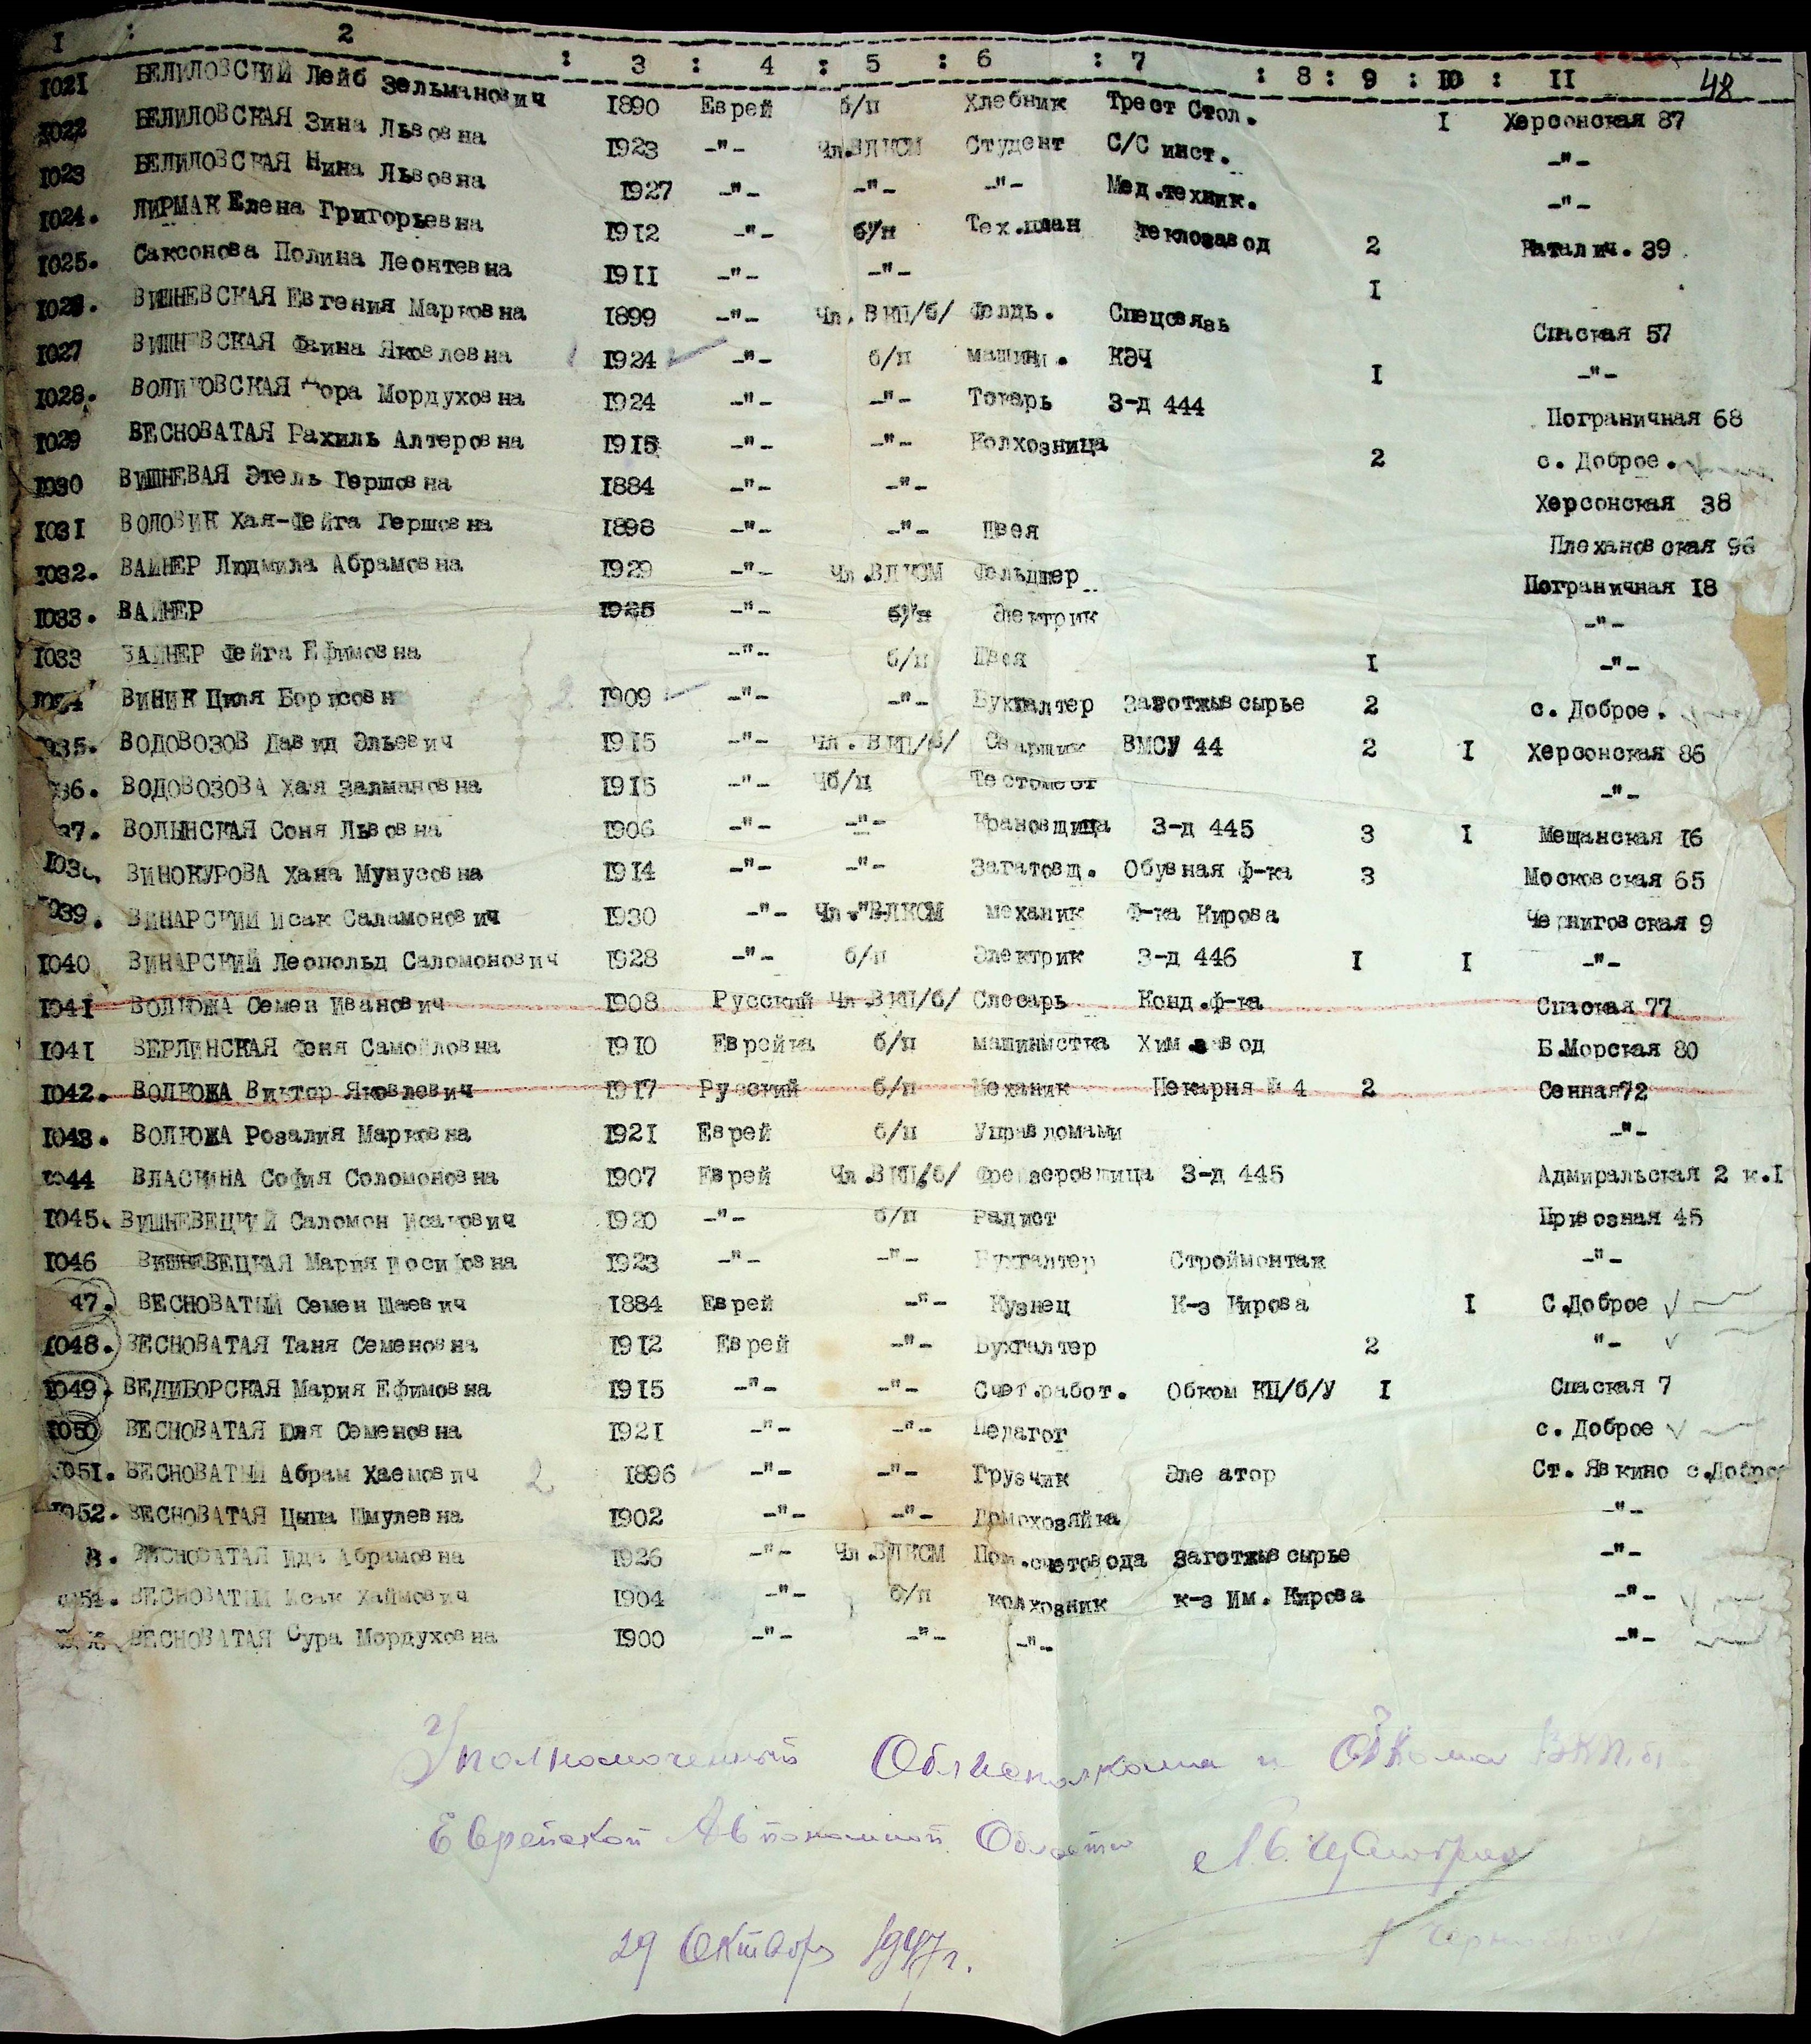 I : 2 : 3 : 4 : 5 : 6 : 7 : 8 : 9 : IO : II 48
IO2I БЕЛИЛОВСКИЙ Лейб Зельманович I890 Еврей б/п Хлебник Трест Стол. I Херсонская 87
IO22 БЕЛИЛОВСКАЯ Зина Львовна I923 -"- Чл.ВЛКСМ Студент С/С инст. -"-
IO23 БЕЛИЛОВСКАЯ Нина Львовна I927 -"- -"- -"- Мед.техник. -"-
IO24. ЛИРМАК Елена Григорьевна I9I2 -"- б/п Тех.план теклозавод 2 Наталич. 39
IO25. Саксонова Полина Леонтевна I9II -"- -"- I
IO26. ВИШНЕВСКАЯ Евгения Марковна I899 -"- Чл. ВКП/б/ Фелдь. Спецсвязь Спаская 57
IO27 ВИШНЕВСКАЯ Фаина Яковлевна I924 -"- б/п машин. КЭЧ I -"-
IO28. ВОЛИКОВСКАЯ Дора Мордуховна I924 -"- -"- Токарь З-д 444 Пограничная 68
IO29 ВЕСНОВАТАЯ Рахиль Алтеровна I9I5 -"- -"- Колхозница 2 с. Доброе.
IO30 ВИШНЕВАЯ Этель Гершовна I884 -"- -"- Херсонская 38
IO3I ВОЛОВИК Хая-Фейга Гершовна I898 -"- -"- Швея Плехановская 96
IO32. ВАЙНЕР Людмила Абрамовна I929 -"- Чл.ВЛКСМ Фельдшер Пограничная I8
IO33. ВАЙНЕР I925 -"- б/п Электрик -"-
IO33 ВАЙНЕР Фейга Ефимовна -"- б/п Швея I -"-
ВИНИК Циля Борисовн 2 I909 -"- -"- Бухгалтер Заготживсырье 2 с. Доброе.
O35. ВОДОВОЗОВ Давид Эльевич I9I5 -"- Чл. ВКП/б/ Сварщик ВМСУ 44 2 I Херсонская 86
36. ВОДОВОЗОВА Хая Залмановна I9I5 -"- Чб/п Тестомест -"-
37. ВОЛЫНСКАЯ Соня Львовна I906 -"- -"- Крановщица З-д 445 3 I Мещанская I6
IO3 ВИНОКУРОВА Хана Мунусовна I9I4 -"- -"- Загатовщ. Обувная ф-ка 3 Московская 65
O39. ВИНАРСКИЙ Исак Саламонович I930 -"- Чл."ВЛКСМ механик Ф-ка Кирова Черниговская 9
IO40 ВИНАРСКИЙ Леопольд Саломонович I928 -"- б/п Электрик З-д 446 I I -"-
IO4I ВОЛКОЖА Семен Иванович I908 Русский Чл.ВКП/б/ Слесарь Конд.ф-ка Спаская 77
IO4I ВЕРЛИНСКАЯ Феня Самойловна I9IO Еврейка б/п машинистка Хим.завод Б.Морская 80
IO42. ВОЛКОЖА Виктор Яковлевич I9I7 Русский б/п Механик Пекарня № 4 2 Сенная72
IO43. ВОЛКОЖА Розалия Марковна I92I Еврей б/п Управдомами -"-
IO44 ВЛАСКИНА София Соломоновна I907 Еврей Чл.ВКП/б/ Фрезеровщица З-д 445 Адмиральская 2 к.I
IO45. ВИШНЕВЕЦКИЙ Саломон Исакович I920 -"- б/п Радист Привозная 45
IO46 ВИШНЕВЕЦКАЯ Мария Иосифовна I923 -"- -"- Бухгалтер Строймонтаж -"-
47. ВЕСНОВАТЫЙ Семен Шаевич I884 Еврей -"- Кузнец К-з Кирова I С.Доброе
IO48. ВЕСНОВАТАЯ Таня Семеновна I9I2 Еврей -"- Бухгалтер 2 "-
IO49. ВЕЛИБОРСКАЯ Мария Ефимовна I9I5 -"- -"- Счет.работ. Обком КП/б/У I Спаская 7
IO50 ВЕСНОВАТАЯ Юля Семеновна I92I -"- -"- Педагог с. Доброе
O5I. ВЕСНОВАТЫЙ Абрам Хаемович 2 I896 -"- -"- Грузчик Эле атор Ст. Явкино с.Доброе
IO52. ВЕСНОВАТАЯ Цыпа Шмулевна I902 -"- -"- Домохозяйка -"-
3. ВЕСНОВАТАЯ Ида Абрамовна I926 -"- Чл.ВЛКСМ Пом.счетовода Заготживсырье -"-
O54. ВЕСНОВАТЫЙ Исак Хаймович I904 -"- б/п колхозник к-з Им. Кирова -"-
ВЕСНОВАТАЯ Сура Мордуховна I900 -"- -"- -"- -"-
Уполномоченный Облисполкома и Обкома ВКП.б.
Еврейской Автономной Области
29 Октября 1947 г.